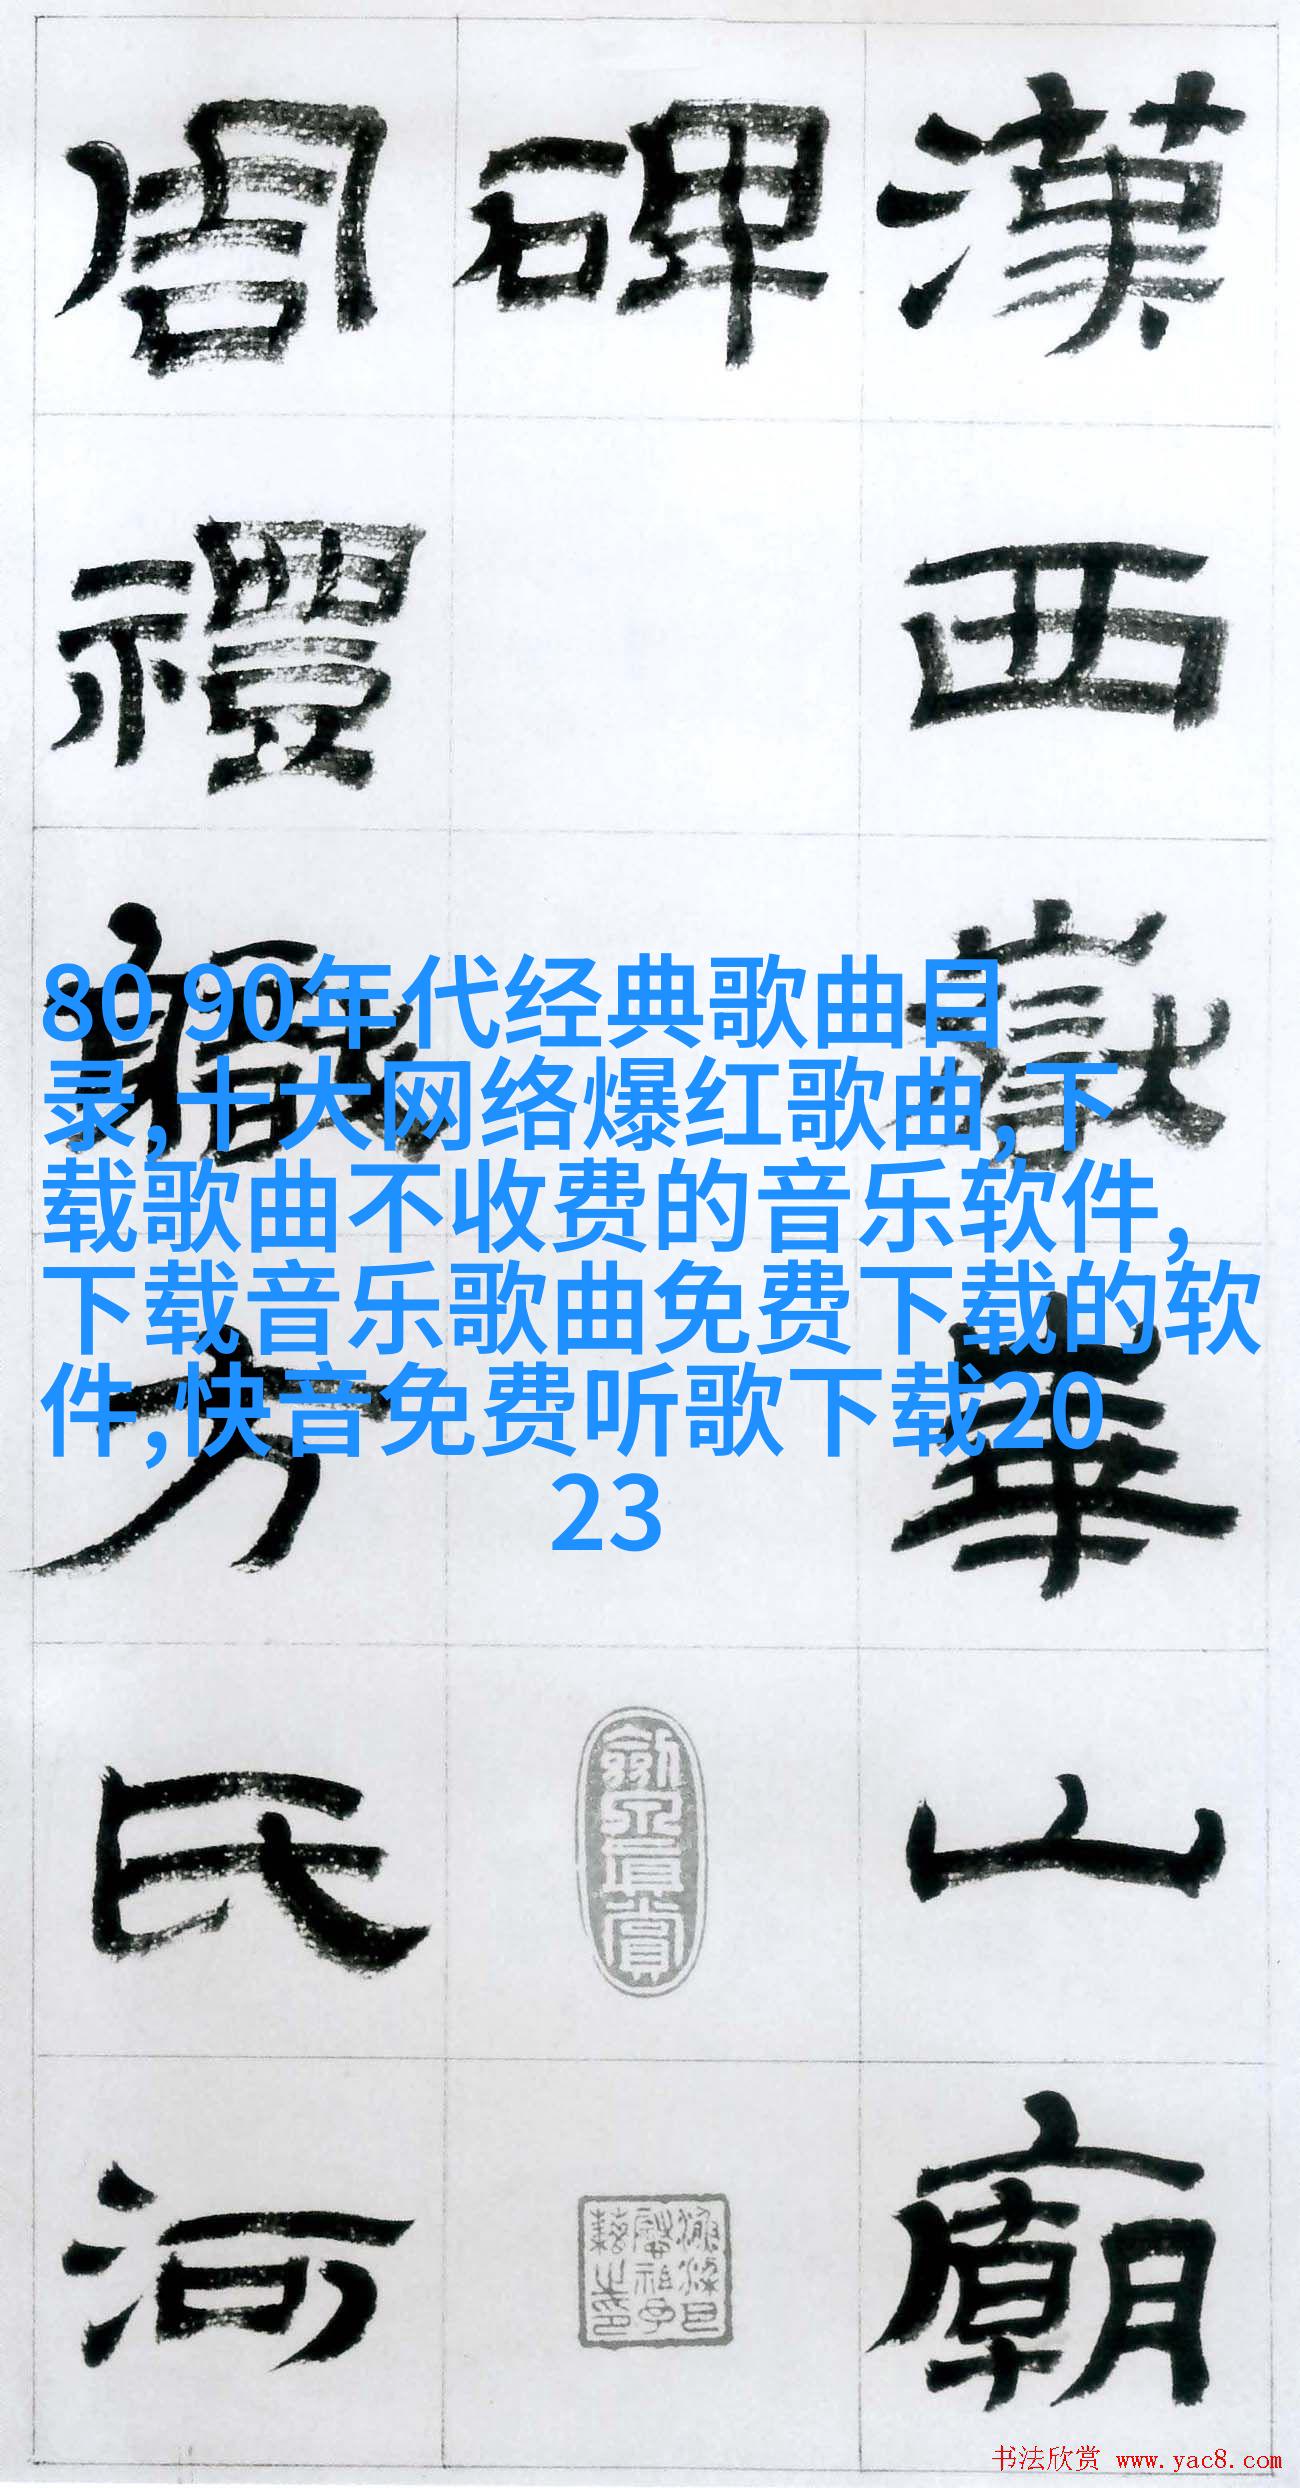 漢西嶽華山廟
碑
周禮職方氏河
80 90年代经典歌曲目
录,十大网络爆红歌曲,下
载歌曲不收费的音乐软件,
下载音乐歌曲免费下载的软
件,快音免费听歌下载20
23
书法欣赏 www.yac8.com